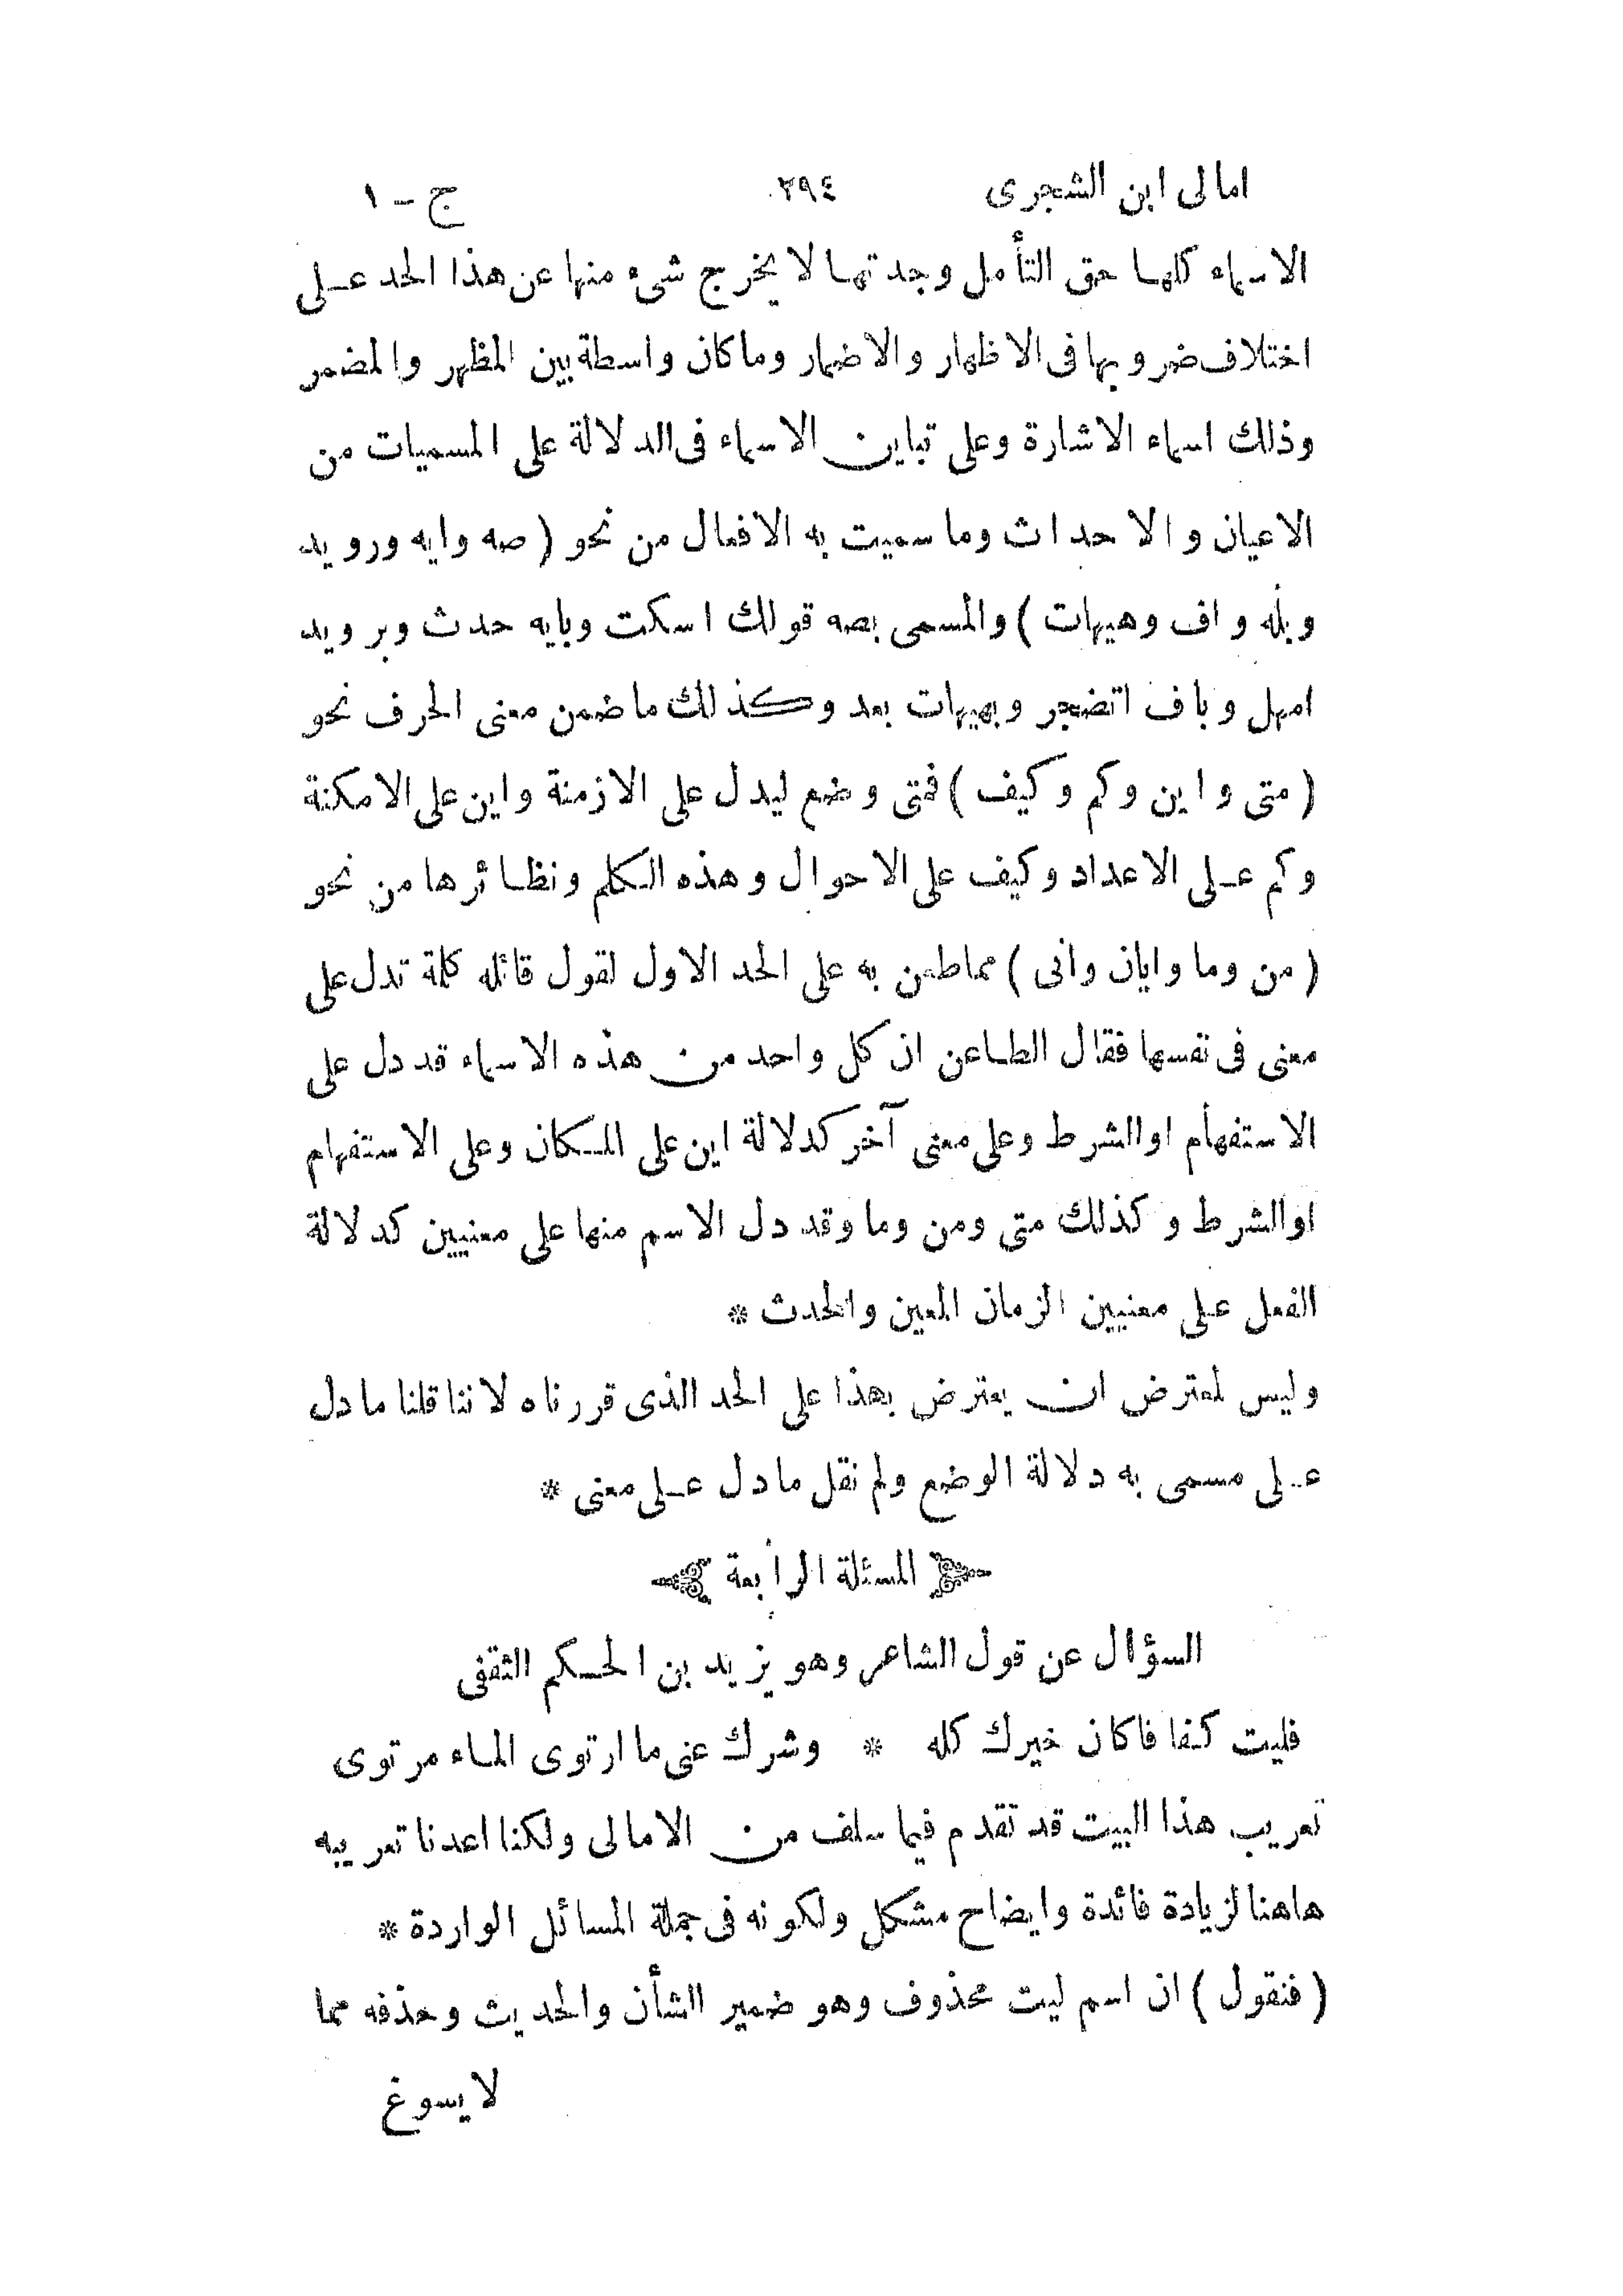 امالى ابن الشجرى ٢٩٤ ج - ١
الاسماء كلها حق التأمل وجدتها لا يخرج شىء منها عن هذا الحد على
اختلاف ضروبها فى الاظهار والاضمار وما كان واسطة بين المظهر والمضمر
وذلك اسماء الاشارة وعلى تباين الاسماء فى الدلالة على المسميات من
الاعيان والاحداث وما سميت به الافعال من نحو ( صه وايه ورويد
وبله واف وهيهات ) والمسمى بصه قولك اسكت وبايه حدث وبرويد
امهل وباف اتضجر وبهيهات بعد وكذلك ما ضمن معنى الحرف نحو
( متى واين وكم وكيف ) فمتى وضع ليدل على الازمنة واين على الامكنة
وكم على الاعداد وكيف على الاحوال وهذه الكلم ونظائرها من نحو
( من وما وايان وانى ) مما طعن به على الحد الاول لقول قائله كلمة تدل على
معنى فى نفسها فقال الطاعن ان كل واحد من هذه الاسماء قد دل على
الاستفهام او الشرط وعلى معنى آخر كدلالة اين على المكان وعلى الاستفهام
او الشرط وكذلك متى ومن وما وقد دل الاسم منها على معنيين كدلالة
الفعل على معنيين الزمان المعين والحدث *
وليس لمعترض ان يعترض بهذا على الحد الذى قررناه لاننا قلنا ما دل
على مسمى به دلالة الوضع ولم نقل ما دل على معنى *
المسئلة الرابعة
السؤال عن قول الشاعر وهو يزيد بن الحكم الثقفى
فليت كفافا كان خيرك كله * وشرك عنى ما ارتوى الماء مرتوى
تعريب هذا البيت قد تقدم فيما سلف من الامالى ولكنا اعدنا تعريبه
هاهنا لزيادة فائدة وايضاح مشكل ولكونه فى جملة المسائل الواردة *
( فنقول ) ان اسم ليت محذوف وهو ضمير الشأن والحديث وحذفه مما
لا يسوغ